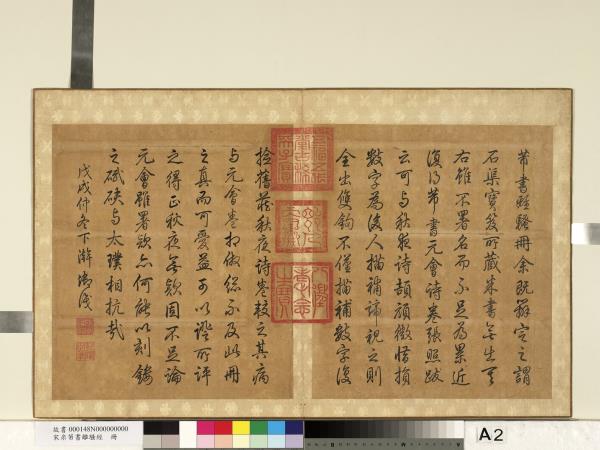 芾書離騷冊余既辨定之謂
石渠寶笈所藏朱書無出其
右雖不署名而不足為累近
復得芾書元會詩卷張照跋
云可与秋夜詩頡頏微惜損
數字為後人描補諦視之則
全出雙鉤不僅描補數字復
撿舊蔵秋夜詩卷較之其病
与元會卷相倣總不及此冊
之真而可愛益可以證所評
之得正秋夜無欵固不足論
元會雖署欵亦何能以刻鏤
之碔砆与太璞相抗哉
戊戌仲冬下澣御識
故書 000148N000000000
宋朱芾書離騷經 冊
A2